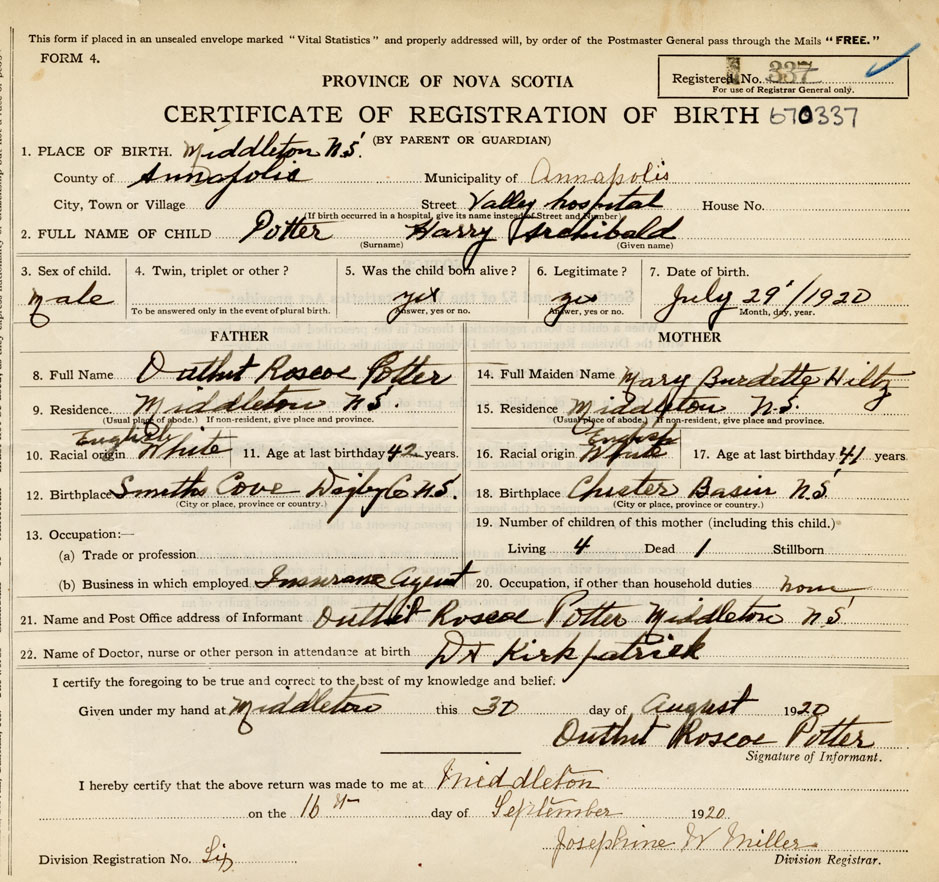 This form if placed in an unsealed envelope marked "Vital Statistics" and properly addressed will, by order of the Postmaster General pass through the Mails "FREE."
FORM 4.
PROVINCE OF NOVA SCOTIA
Registered No. 337
For use of Registrar General only.
CERTIFICATE OF REGISTRATION OF BIRTH 670337
(BY PARENT OR GUARDIAN)
1. PLACE OF BIRTH. Middleton N.S.
County of Annapolis Municipality of Annapolis
City, Town or Village Street Valley hospital House No.
(If birth occurred in a hospital, give its name instead of Street and Number)
2. FULL NAME OF CHILD Potter Harry Archibald
(Surname) (Given name)
3. Sex of child. 4. Twin, triplet or other? 5. Was the child born alive? 6. Legitimate? 7. Date of birth.
Male yes yes July 29/1920
To be answered only in the event of plural birth. Answer, yes or no. Answer, yes or no. Month, day, year.
FATHER MOTHER
8. Full Name Outhit Roscoe Potter 14. Full Maiden Name Mary Burdette Hiltz
9. Residence. Middleton N.S. 15. Residence Middleton N.S.
(Usual place of abode.) If non-resident, give place and province. (Usual place of abode.) If non-resident, give place and province.
English English
10. Racial origin White 11. Age at last birthday 42 years. 16. Racial origin White 17. Age at last birthday 41 years.
12. Birthplace Smiths Cove Digby Co N.S. 18. Birthplace Chester Basin N.S
(City or place, province or country.) (City or place, province or country.)
13. Occupation:— 19. Number of children of this mother (including this child.)
(a) Trade or profession Living 4 Dead 1 Stillborn
(b) Business in which employed Insurance Agent 20. Occupation, if other than household duties none
21. Name and Post Office address of Informant Outhit Roscoe Potter Middleton N S
22. Name of Doctor, nurse or other person in attendance at birth Dr Kirkpatrick
I certify the foregoing to be true and correct to the best of my knowledge and belief.
Given under my hand at Middleton this 30 day of August 1920
Outhit Roscoe Potter
Signature of Informant.
I hereby certify that the above return was made to me at Middleton
on the 16th day of September 1920.
Josephine W Miller
Division Registration No. Six Division Registrar.